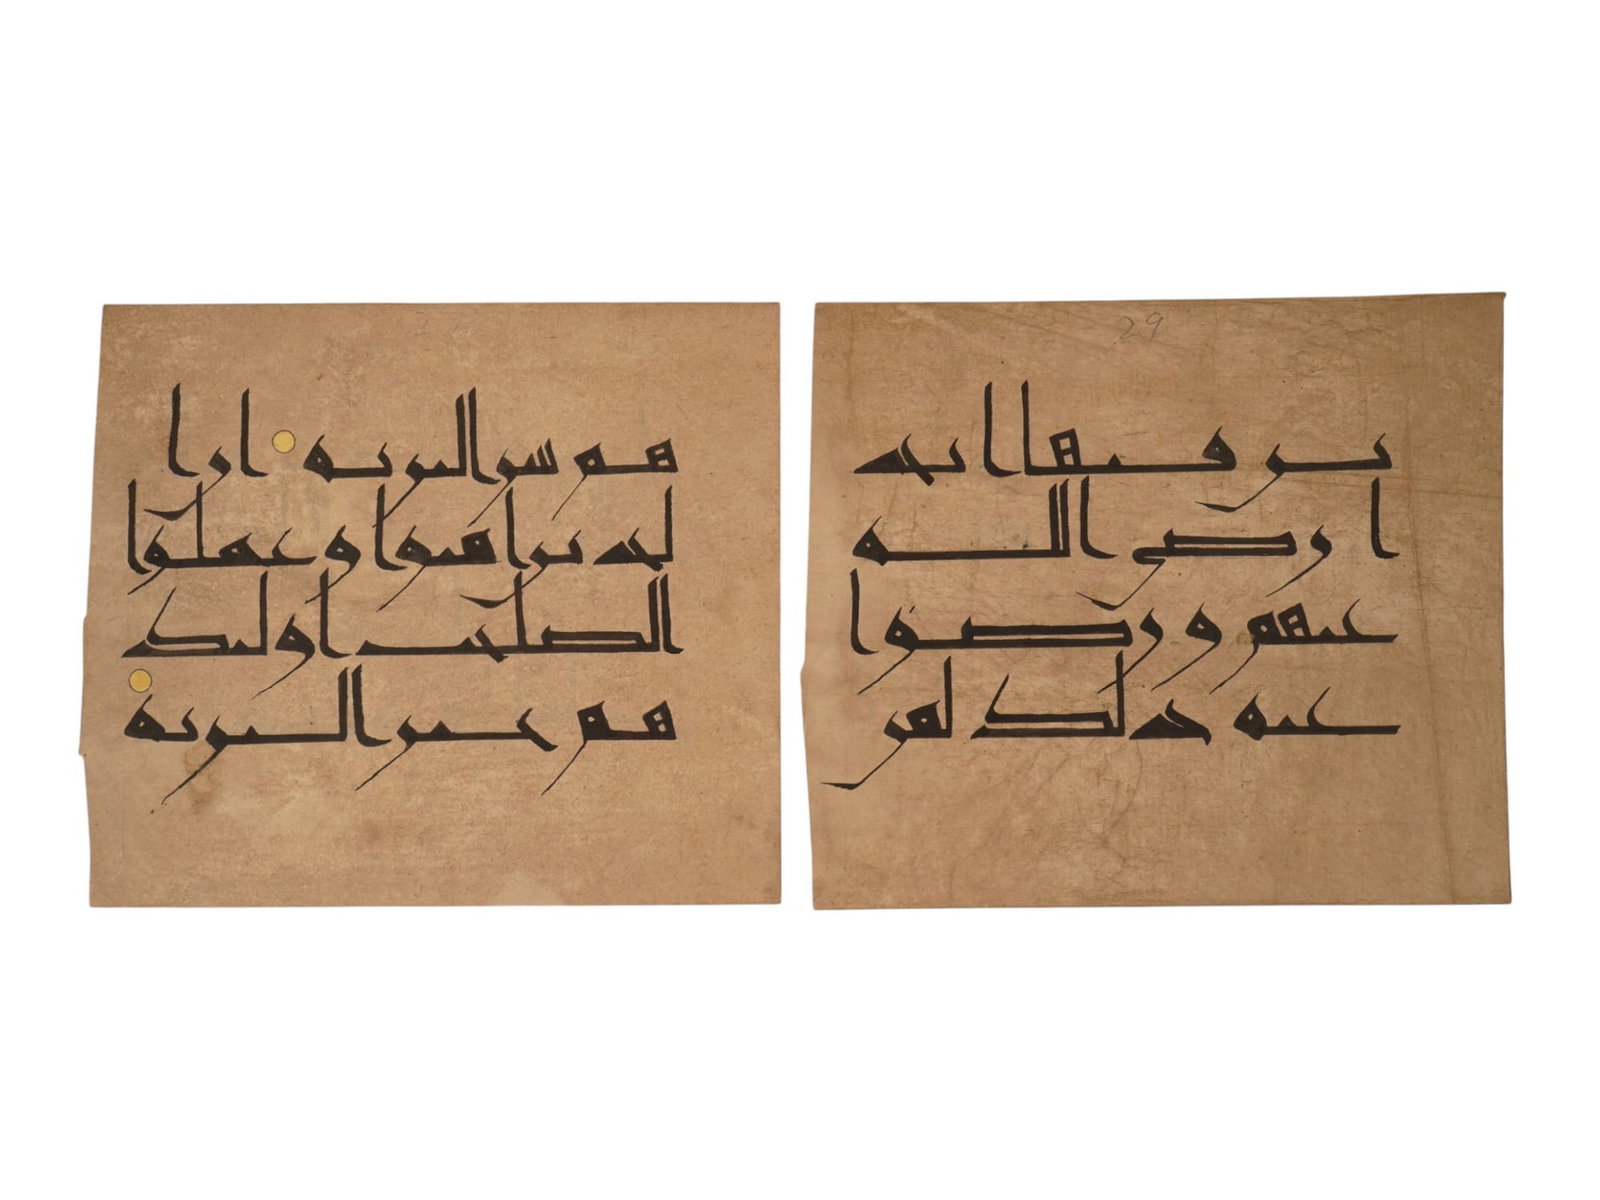 هم شر البرية ان ا
لذين امنوا وعملوا
الصلحت اولئك
هم خير البرية
29
ين فيها ابد
ا رضي الله
عنهم ورضوا
عنه ذلك لمن